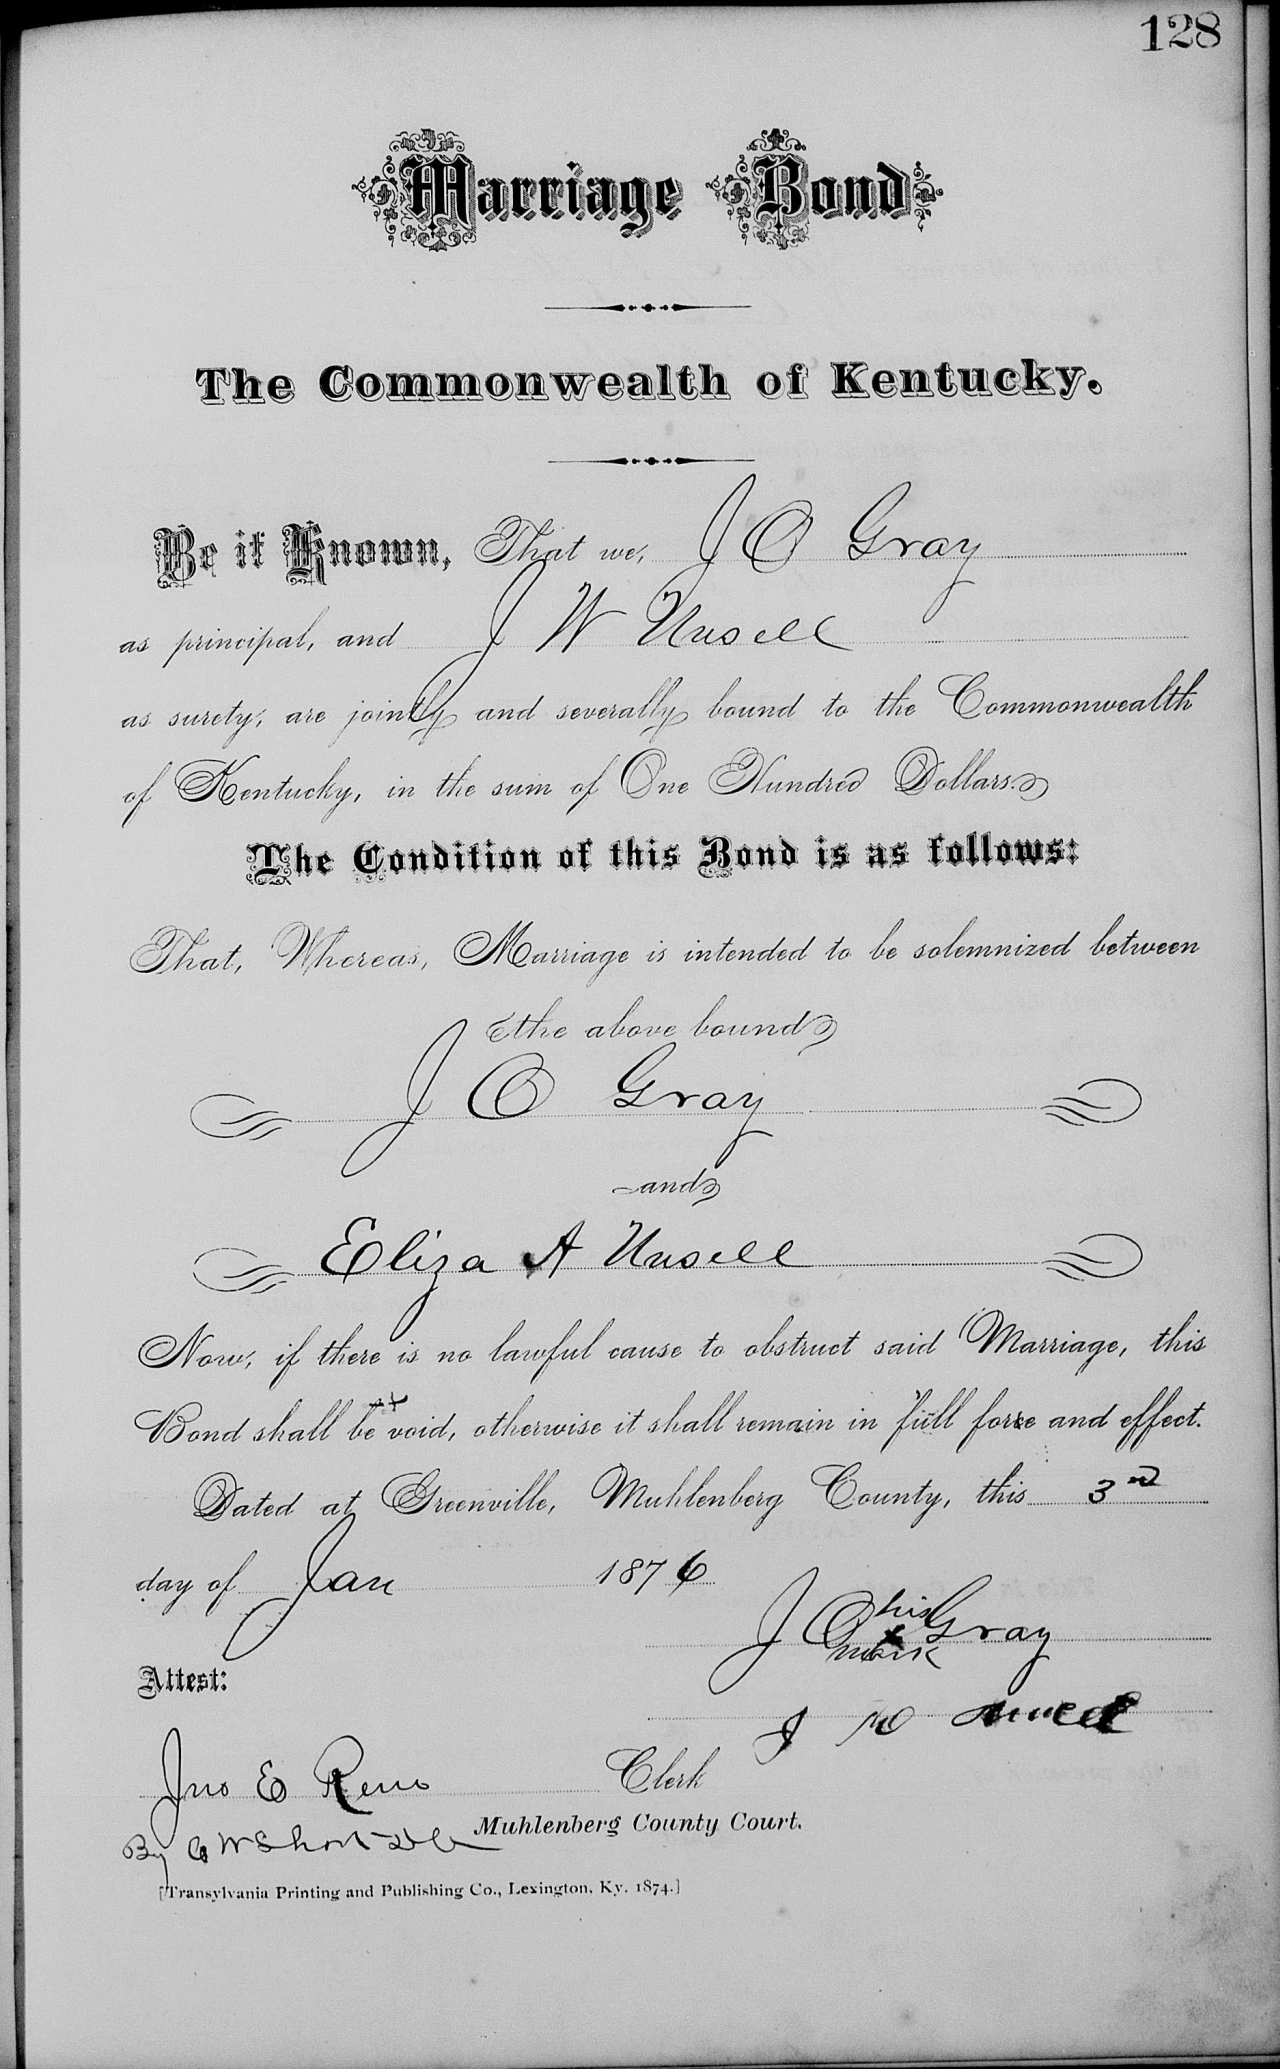 128
Marriage Bond.
The Commonwealth of Kentucky.
Be it Known, That we, J O Gray
as principal, and J W Unsell
as surety, are jointly and severally bound to the Commonwealth
of Kentucky, in the sum of One Hundred Dollars.
The Condition of this Bond is as follows:
That, Whereas, Marriage is intended to be solemnized between
the above bound
J O Gray
and
Eliza A Unsell
Now, if there is no lawful cause to obstruct said Marriage, this
Bond shall be void, otherwise it shall remain in full force and effect.
Dated at Greenville, Muhlenberg County, this 3rd
day of Jan 1876
his
J O x Gray
mark
Attest:
J W
Jno E Reno Clerk
Muhlenberg County Court.
By W Short
[Transylvania Printing and Publishing Co., Lexington, Ky. 1874.]